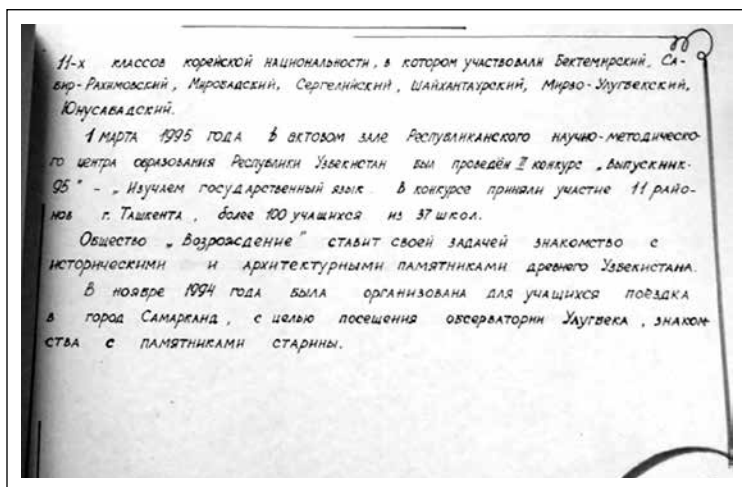 11-х классов корейской национальности, в котором участвовали Бектемирский, Са-
бир-Рахимовский, Мирабадский, Сергелийский, Шайхантахурский, Мирзо-Улугбекский,
Юнусабадский.
1 марта 1995 года в актовом зале Республиканского научно-методическо-
го центра образования Республики Узбекистан был проведён II конкурс „Выпускник-
95" - „Изучаем государственный язык. В конкурсе приняли участие 11 райо-
нов г. Ташкента, более 100 учащихся из 37 школ.
Общество „Возрождение" ставит своей задачей знакомство с
историческими и архитектурными памятниками древнего Узбекистана.
В ноябре 1994 года была организована для учащихся поездка
в город Самарканд, с целью посещения обсерватории Улугбека, знаком-
ства с памятниками старины.